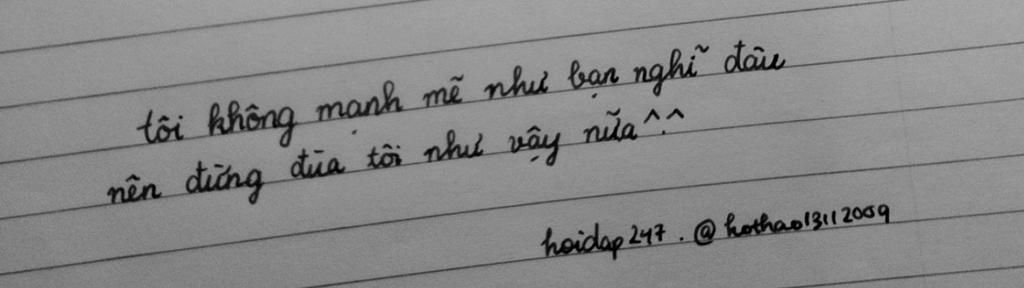 tôi không mạnh mẽ như bạn nghĩ đâu
nên đừng đùa tôi như vậy nữa^.^
hoidap247. @hothao13112009